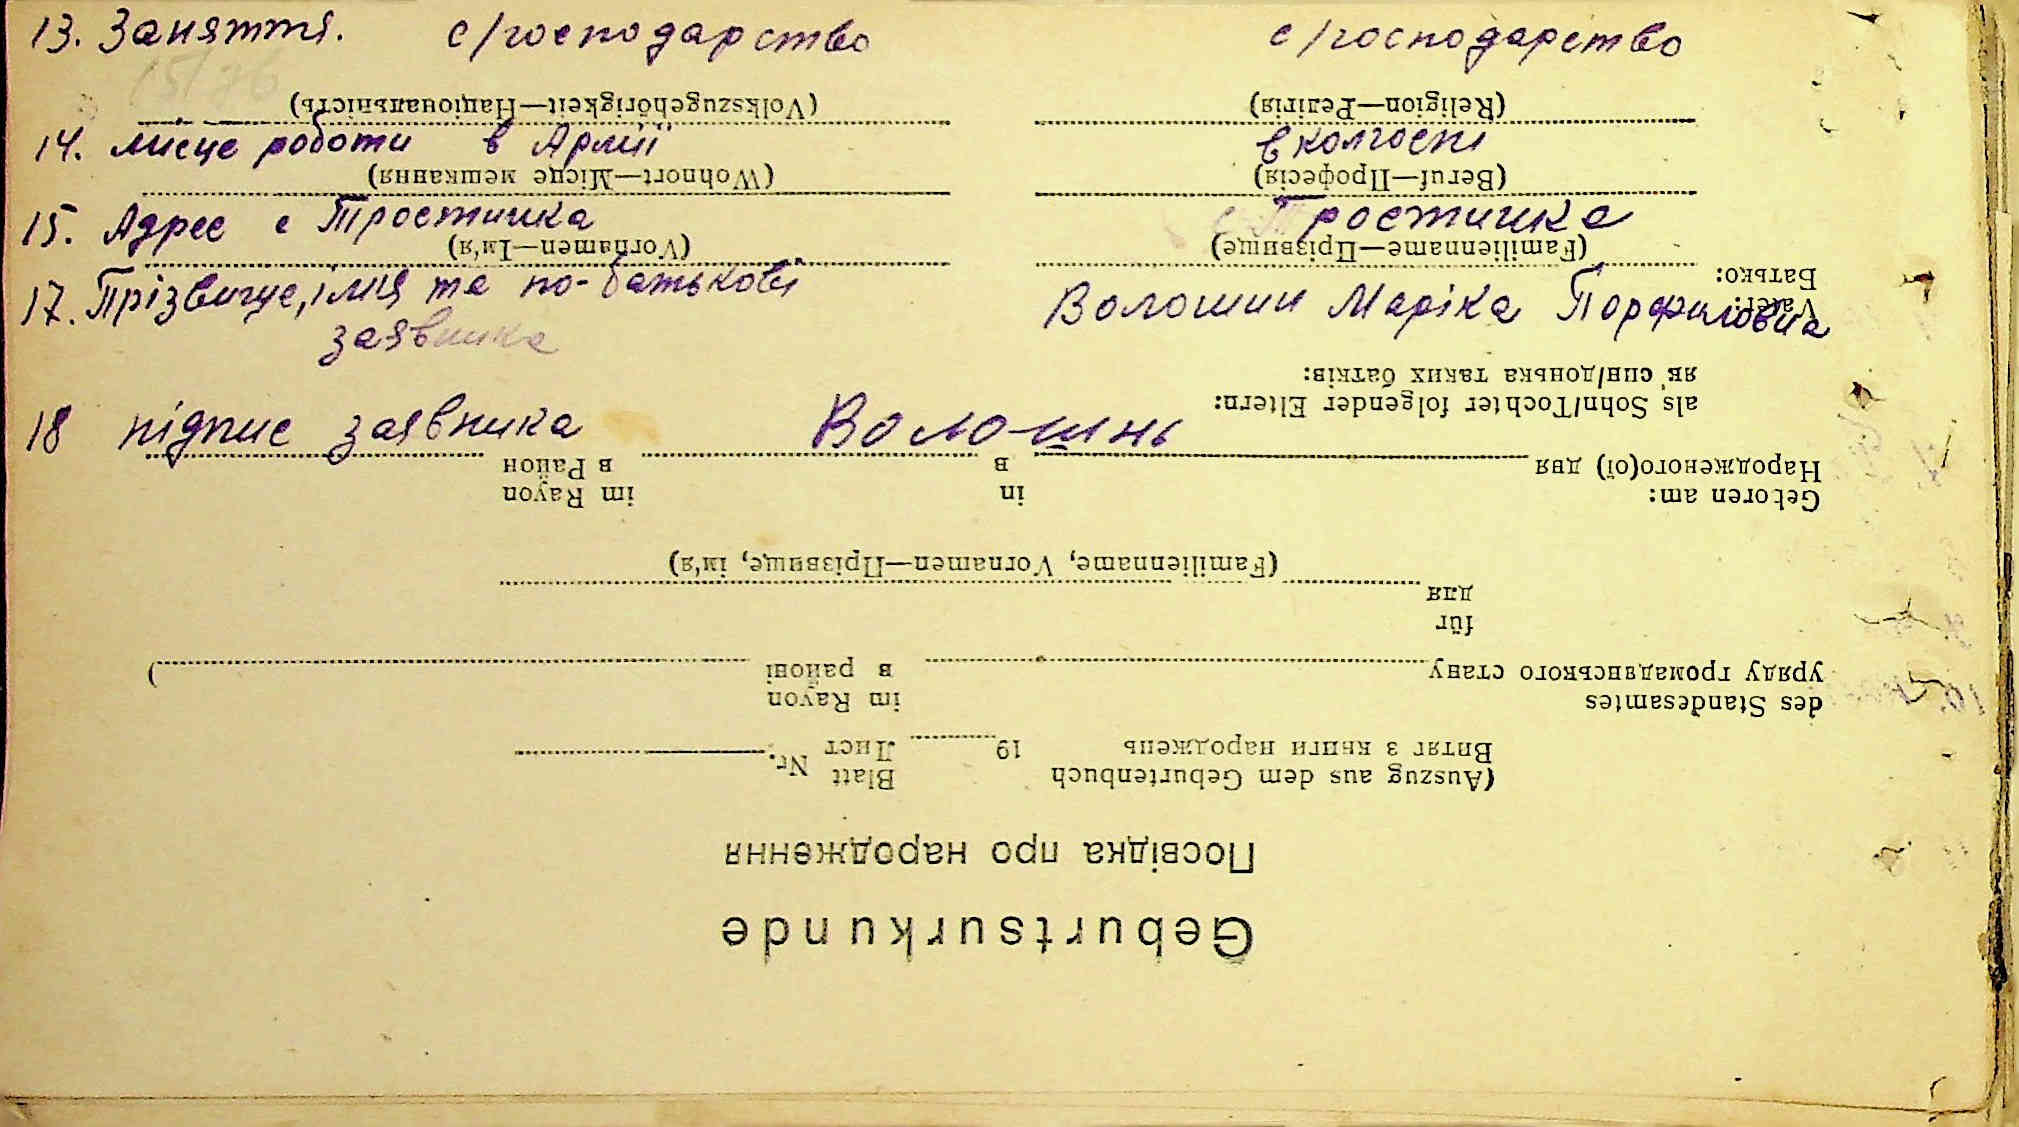 13. Заняття. с/господарство с/господарство
14. місце роботи в Армії в колгоспі
15. Адрес с Тростичка с Тростичка
17. Прізвище, імя та по-батькові Волошин Маріка Порфилівна
заявника
18 підпис заявника Волошинь
Geburtsurkunde
Посвідка про народження
(Auszug aus dem Geburtenbuch Blatt Nr.
Витяг з книги народжень 19 Лист
des Standesamtes im Rayon
уряду громадянського стану в районі )
für
для
(Familienname, Vornamen—Прізвище, ім'я)
Geboren am: in im Rayon
Народженого(ої) дня в в Район
als Sohn/Tochter folgender Eltern:
як син/донька таких батків:
Vater:
Батько:
(Familienname—Прізвище) (Vornamen—Ім'я)
(Beruf—Професія) (Wohnort—Місце мешкання)
(Religion—Релігія) (Volkszugehörigkeit—Національність)